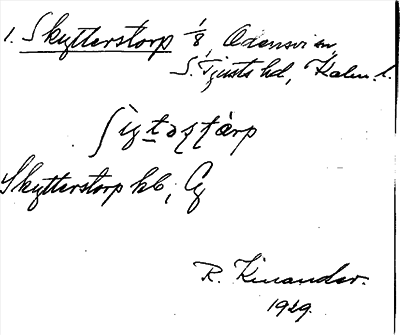 1. Skytterstorp 1/8, Odensvi sn,
S. Tjusts hd, Kalm. l.
Skytterstorp hb,
R. Kinander.
1929.